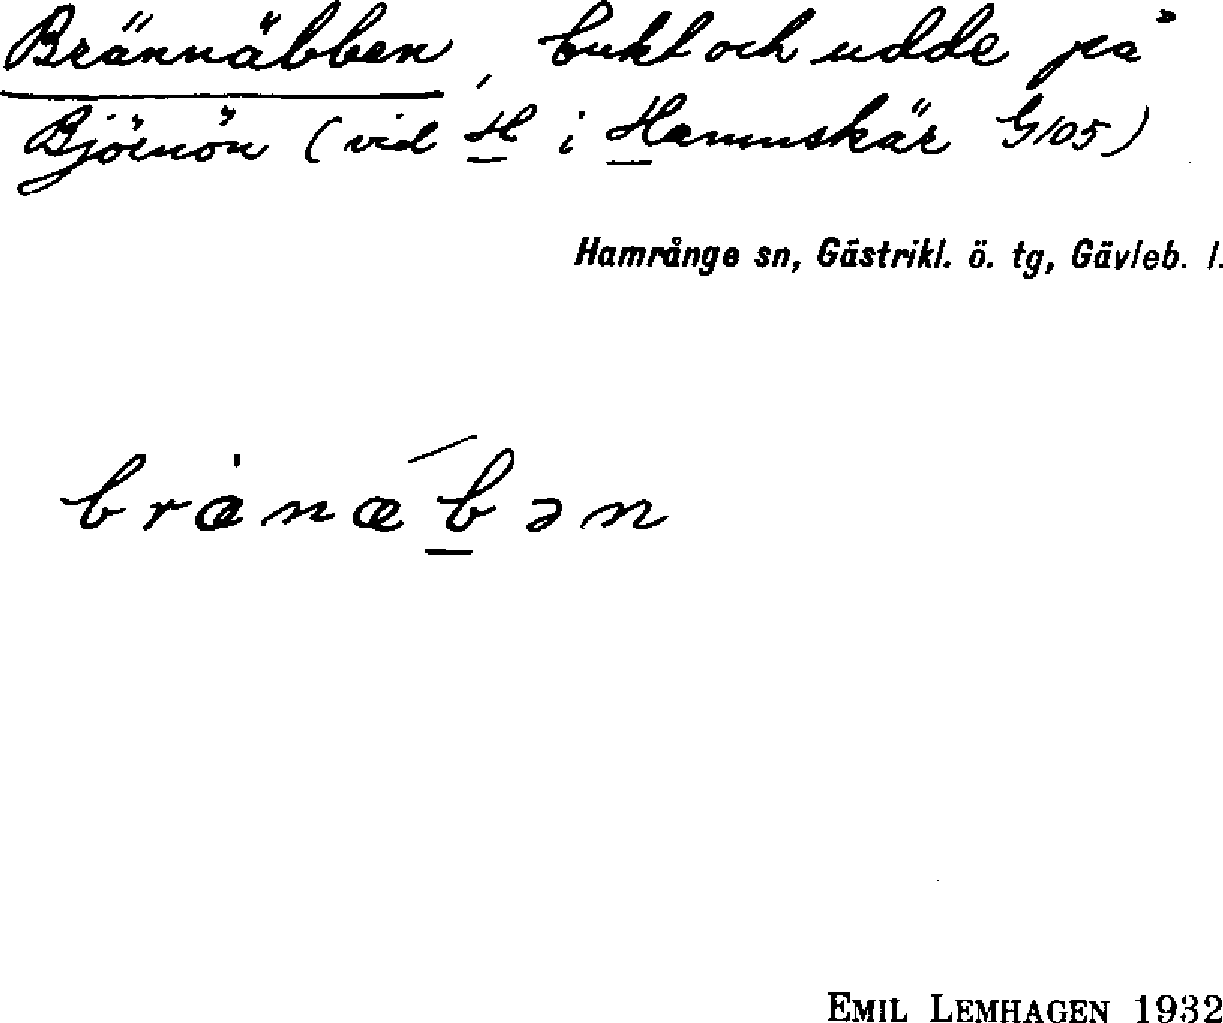 Brännäbben, bukt och udde på
Björnön (vid H i Hamnskär G105)
Hamrånge sn, Gästrikl. ö. tg, Gävleb. l.
brænæbən
EMIL LEMHAGEN 1932